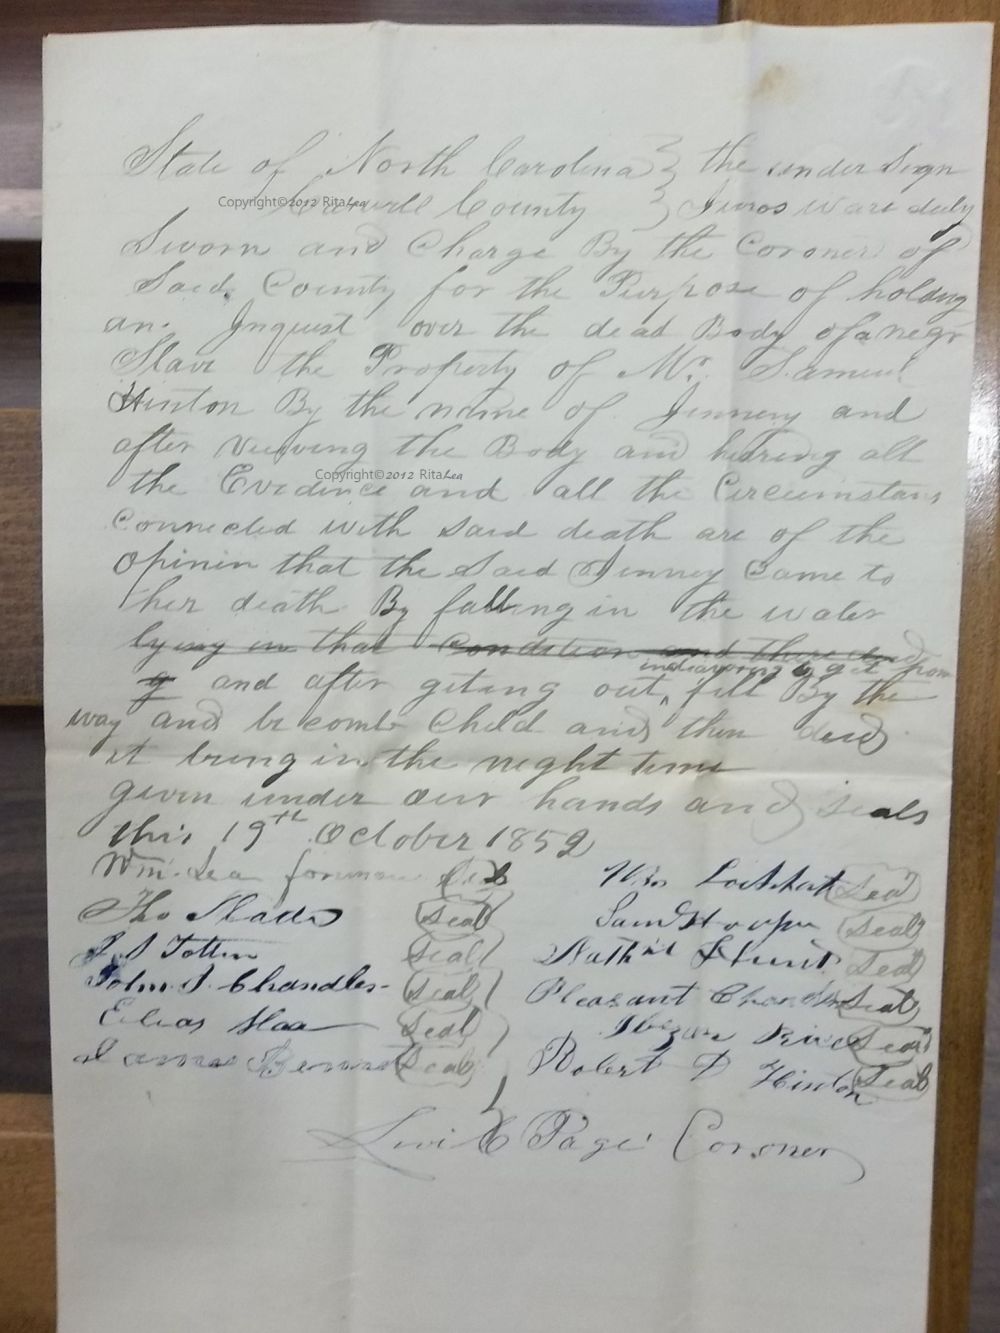 State of North Carolina } the under Sign
Caswell County } Juros ware duly
Copyright©2012 RitaLea
Sworn and Charge By the Coroner of
Said County for the Purpose of holding
an Inquest over the dead Body of a negr
Slave the Property of Mr. Samuel
Hinton By the name of Jinney and
after viewing the Body and hearing all
Copyright©2012 RitaLea
the Evidince and all the Circumstans
Connected with said death are of the
Opinin that the Said Jinney Came to
her death By falling in the water
lying in that condition and there
indeavoring to git from
and after giting out, fell By the
way and be comb Chiled and then died
it being in the night time
given under our hands and seals
this 19th October 1852
Wm. Lea forman Seal
Tho Slade Seal
J. S Totten Seal
John. S. Chandler Seal
Elias Seal
James Seal
Wm Lockhart Seal
Saml Hooper Seal
Nath'nl Hunt Seal
Pleasant Chandler Seal
Rice Seal
Robert D Hinton Seal
Levi C Page Coroner